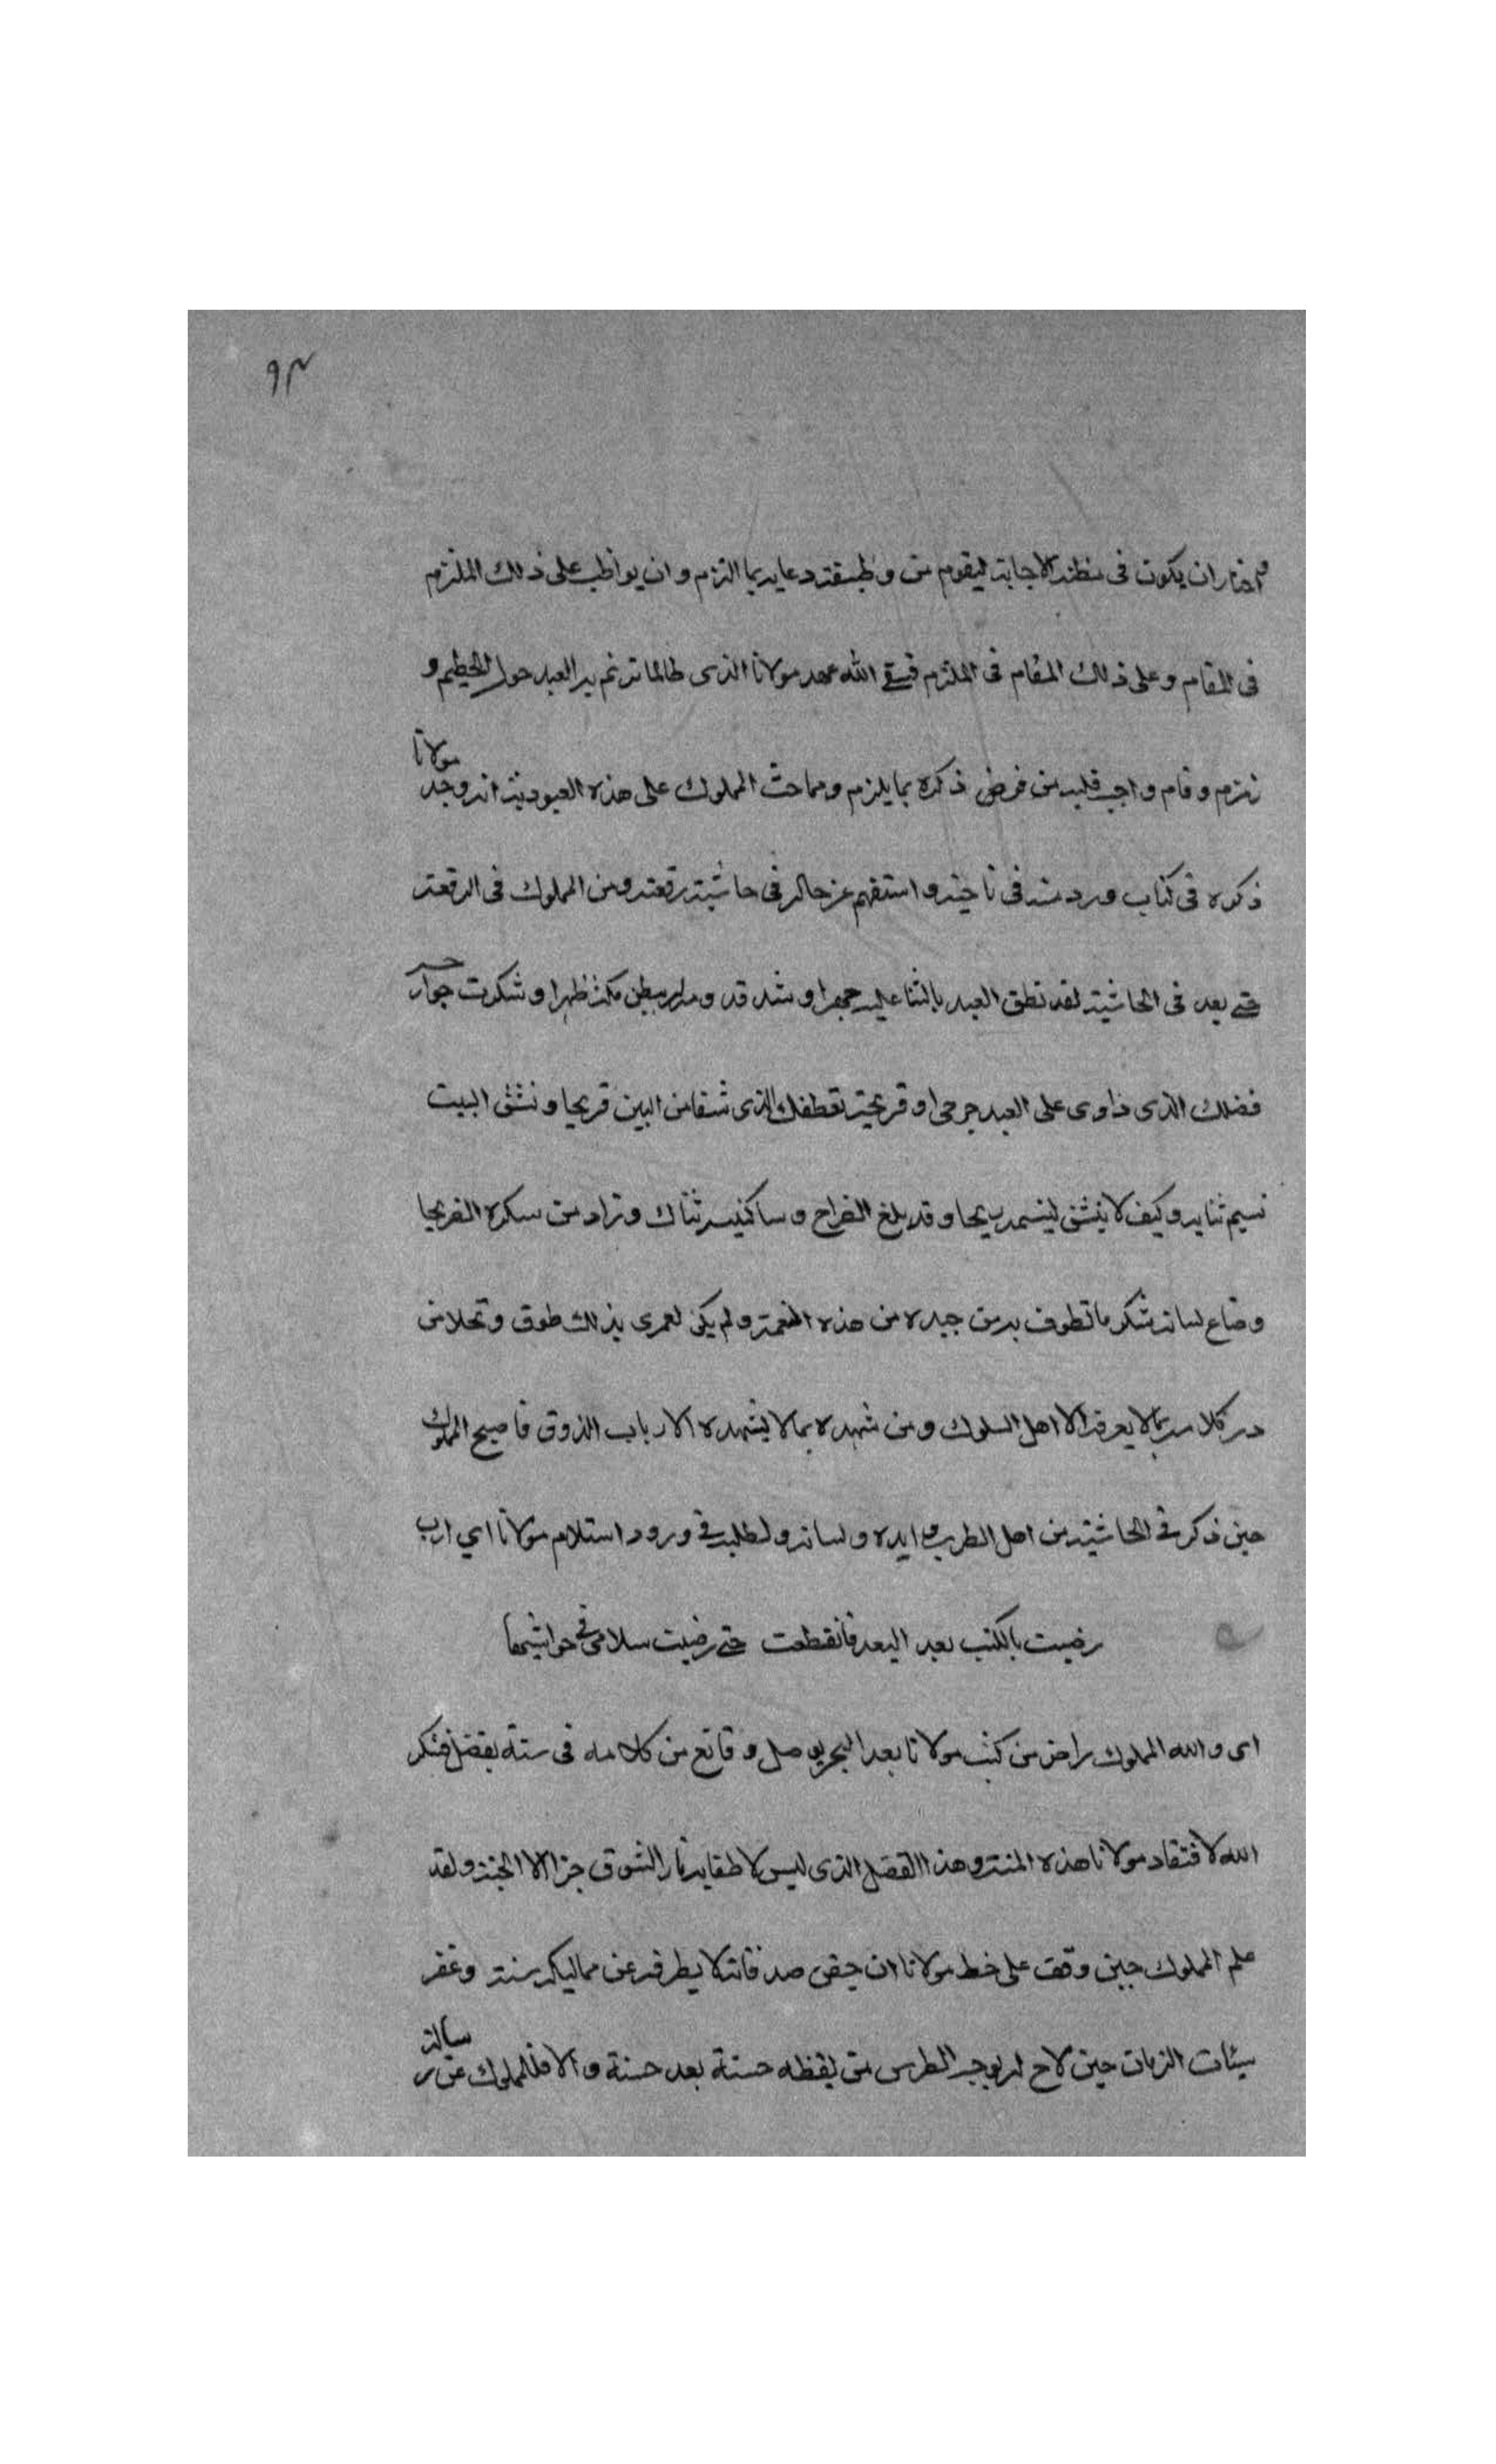 ٩٣
اختار ان يكون فى مظنة الاجابة ليقوم من وظيفة دعايه بما التزم وان يواظب على ذلك الملتزم
فى المقام وعلى ذلك المقام فى الملتزم فسقى الله عهد مولانا الذى طالما ترنم به العبد حول الحطيم و
زمزم وقام واجب قلبه من فرض ذكره بما يلزم ومما حث المملوك على هذه العبودية انه وجد مولانا
ذكره فى كتاب ورد منه فى ناحيته واستفهم عن حاله فى حاشية رقعته ومن المملوك فى الرقعة
حتى يعد فى الحاشية لقد نطق العبد بالثنا عليه جهرا وشد قد ببطن مكة ظهرا وشكرت جوارحه
فضلك الذى داوى على العبد جرحى او قريحته تعطفك الذى شفا من البين قريحا ونشق البيت
نسيم ثنايه وكيف لا ينشق لنسمه ريحا وقد بلغ الضراح وساكنيه ثناك وزاد من سكره الضريحا
وضاع لسانه بشكر ما تطوف به من جيده من هذه النعمة ولم يكن لعمرى بذلك طوق وتحلا من
در كلامه بما لا يعرفه الا اهل السلوك ومن شهده بما لا يشهده الا ارباب الذوق فاصبح المملوك
حين ذكر فى الحاشية من اهل الطرب ايده ولسانه ولطلبه فى ورود استلام مولانا اى ارب
رضيت بالكتب بعد البعد فانقطعت حتى رضيت سلامى فى حواشيها
اى والله المملوك راض من كتب مولانا بعد الهجر بوصل وقانع من كلامه فى ستة بفضل فشكر
الله لافتقاد مولانا هذه المنة وهذا الفضل الذى ليس لاطفايه نار الشوق جزا الا الجنة ولقد
علم المملوك حين وقف على خط مولانا ان صدقاته لا يطرف عن مماليكه سنة وغفر
سيئات الزمان حين لاح له بوجه الطرس من لفظه حسنة بعد حسنة والا فالمملوك عن رسالة